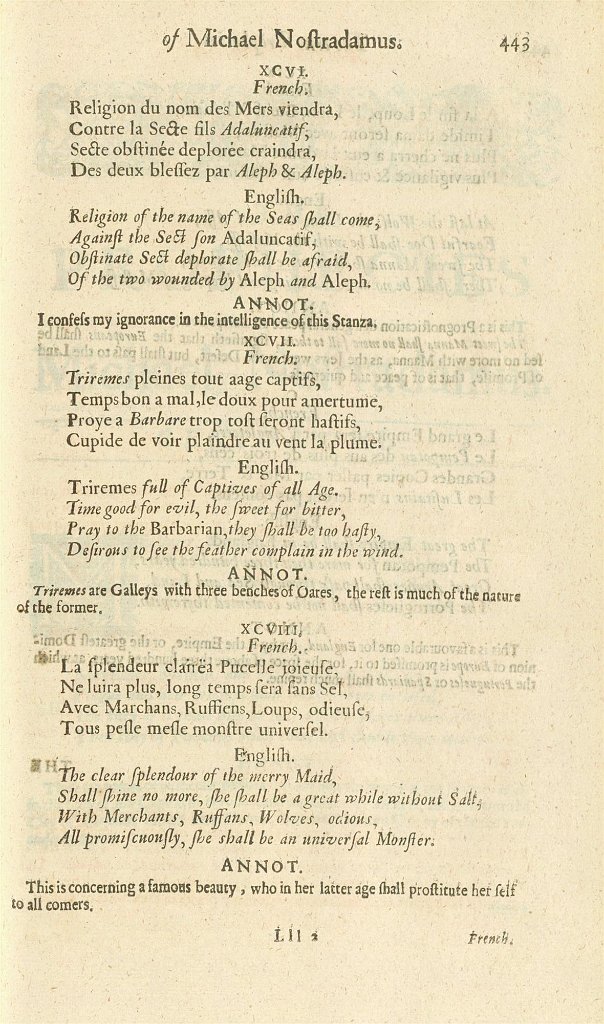 of Michael Noſtradamus. 443
XCVI.
French.
Religion du nom des Mers viendra,
Contre la Secte fils Adaluncatif,
Secte obſtinée deplorée craindra,
Des deux bleſſez par Aleph & Aleph.
Engliſh.
Religion of the name of the Seas ſhall come,
Againſt the Sect ſon Adaluncatif,
Obſtinate Sect deplorate ſhall be afraid,
Of the two wounded by Aleph and Aleph.
ANNOT.
I confeſs my ignorance in the intelligence of this Stanza.
XCVII.
French.
Triremes pleines tout aage captifs,
Temps bon a mal, le doux pour amertume,
Proye a Barbare trop toſt ſeront haſtifs,
Cupide de voir plaindre au vent la plume.
Engliſh.
Triremes full of Captives of all Age.
Time good for evil, the ſweet for bitter,
Pray to the Barbarian, they ſhall be too haſty,
Deſirous to ſee the feather complain in the wind.
ANNOT.
Triremes are Galleys with three benches of Oares, the reſt is much of the nature
of the former.
XCVIII.
French.
La ſplendeur claireä Pucelle joieuſe.
Ne luira plus, long temps ſera ſans Sel,
Avec Marchans, Ruffiens, Loups, odieuſe,
Tous peſle meſle monſtre univerſel.
Engliſh.
The clear ſplendour of the merry Maid,
Shall ſhine no more, ſhe ſhall be a great while without Salt,
With Merchants, Ruffans, Wolves, odious,
All promiſcuouſly, ſhe shall be an univerſal Monſter.
ANNOT.
This is concerning a famous beauty, who in her latter age ſhall proſtitute her ſelf
to all comers.
Lll 2 French.